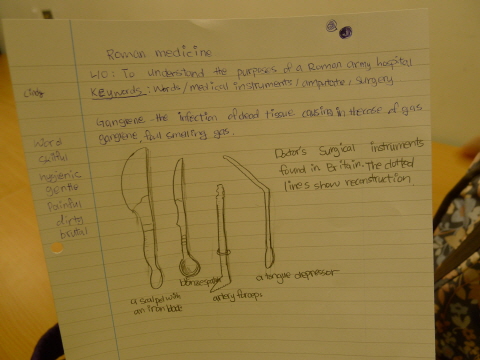 Roman medicine
L/O: To understand the purposes of a Roman army hospital
Keywords: Words/medical instruments/amputate/surgery
Gangrene the infection of dead tissue causing in the case of gas
gangrene, foul smelling gas.
weird
hygienic
gentle
Painful
dirty
brutal
Doctor's Surgical instruments
found in Britain. The dotted
lines show reconstruction.
a scalpel with
an iron blade
artery forceps
a tongue depressor